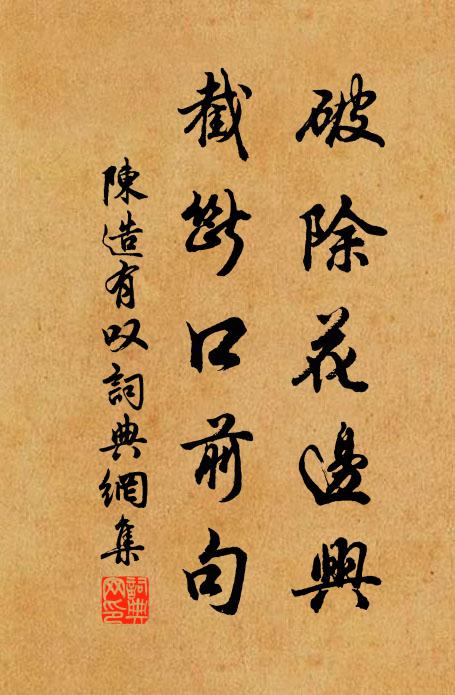 破除花邊興
截斷口前句
陳造有叹詞典網集
詞典網印